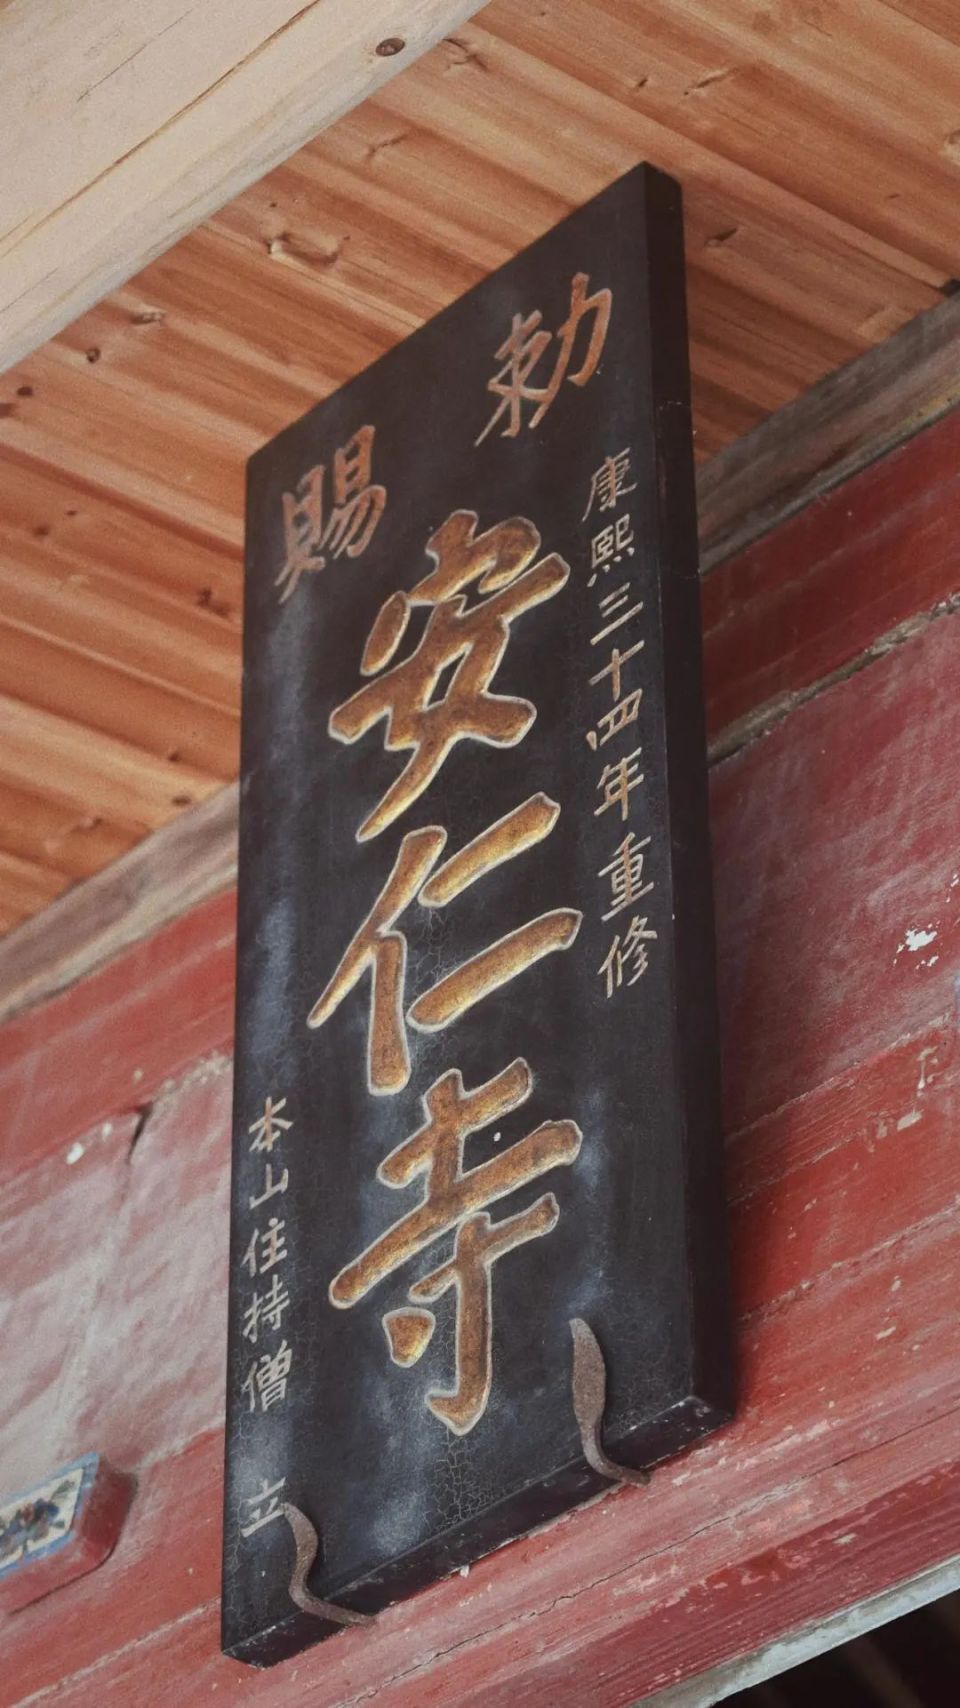 勅賜
康熙三十四年重修
安仁寺
本山住持僧 立